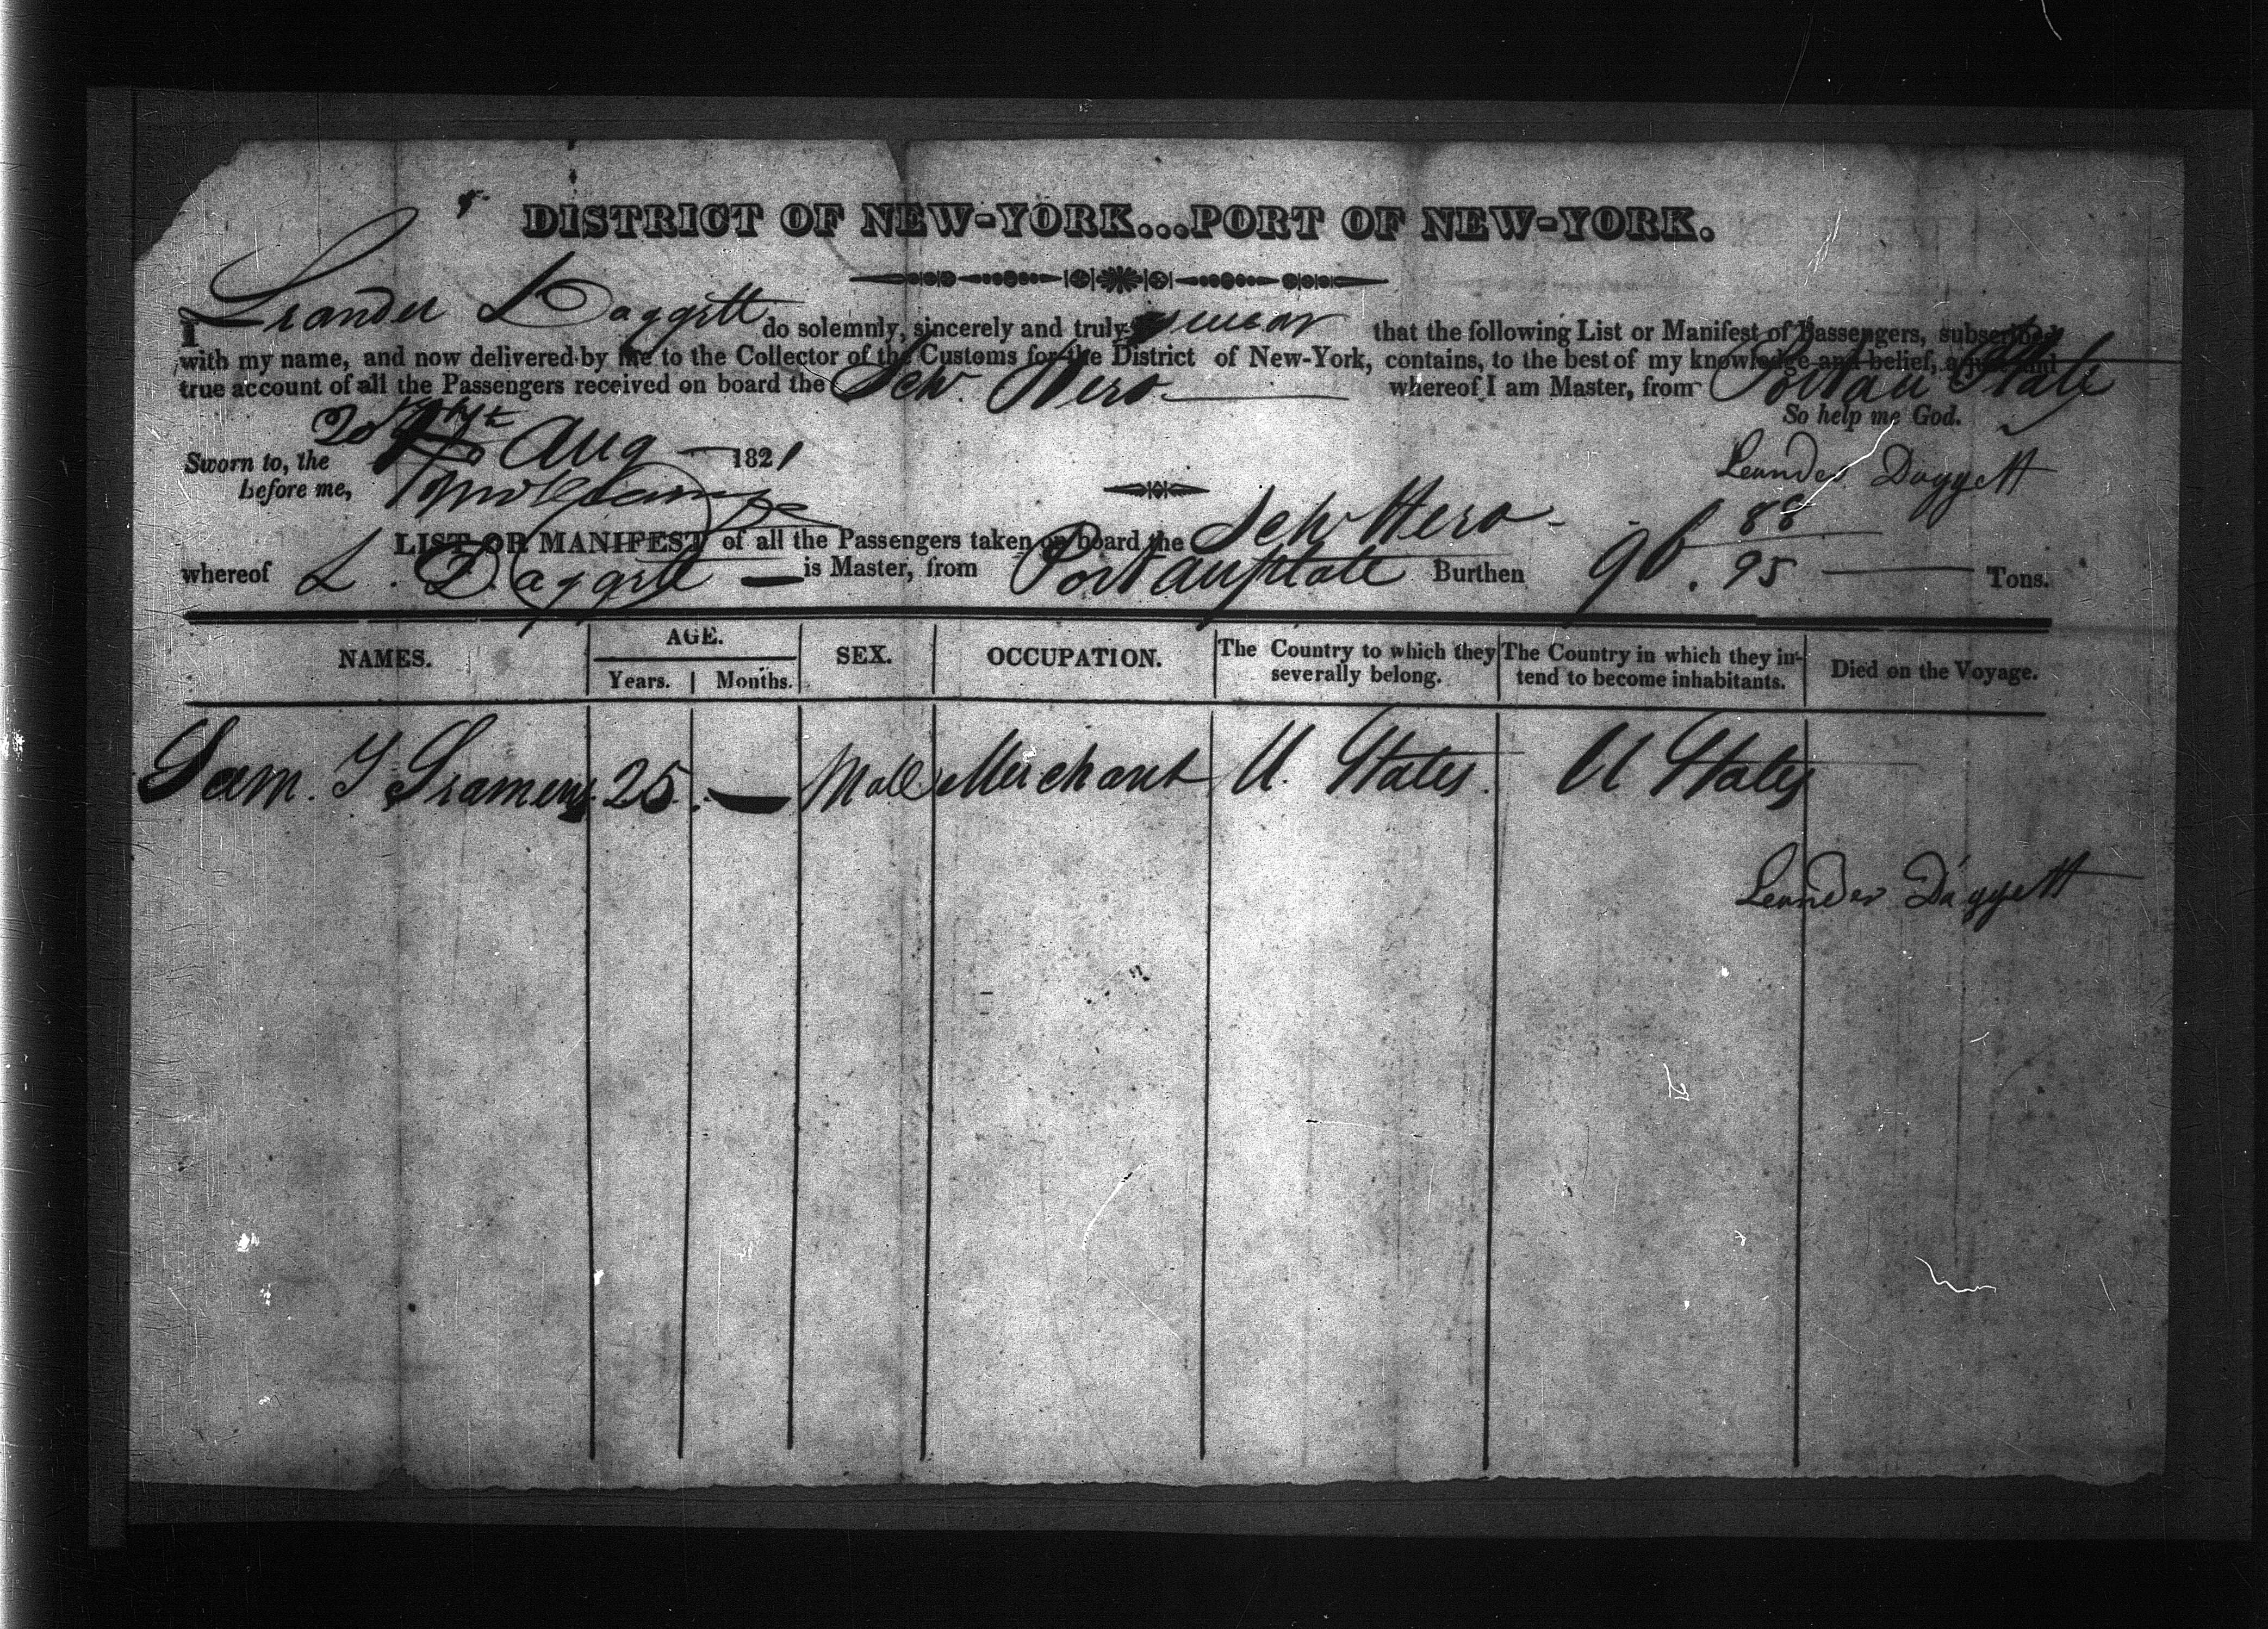 DISTRICT OF NEW-YORK...PORT OF NEW-YORK.
I Leander Daggett do solemnly, sincerely and truly swear that the following List or Manifest of Passengers, subscribed
with my name, and now delivered by me to the Collector of the Customs for the District of New-York, contains, to the best of my knowledge and belief, a just and
true account of all the Passengers received on board the Schr Hero whereof I am Master, from Port au Plate
So help me God.
Sworn to, the Aug 1821
before me,
Leander Daggett
LIST OR MANIFEST of all the Passengers taken on board the Schr Hero
whereof L. Daggett is Master, from Port au plate Burthen 96. 88/95 Tons.
NAMES. AGE. SEX. OCCUPATION. The Country to which they severally belong. The Country in which they intend to become inhabitants. Died on the Voyage.
Years. Months.
Sam. 25 — Male Merchant U. States U States
Leander Daggett